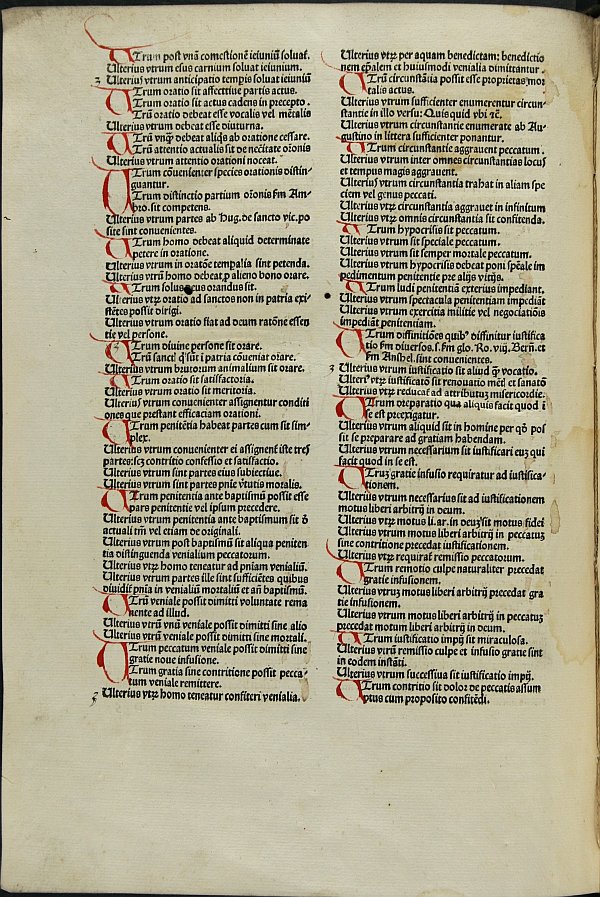 UTrum post vnā comestionē ieiuniū soluat͛.
Ulterius vtrum esus carnium soluat ieiunium.
Ulterius vtrum anticipatio tempis soluat ieiuniū
UTrum oratio sit affectiue partis actus.
UTrum oratio sit actus cadens in precepto.
UTrū oratio debeat esse vocalis vel mētalis
Ulterius vtrum debeat esse diuturna.
UTrū vnqͣ debeat aliqͥs ab oratione cessare.
UTrū attentio actualis sit de nēcitate oōonis
Ulterius vtrum attentio orationi noceat.
UTrum cōuenienter species orationis distin-
guantur.
UTrum distinctio partium oōonis ẜm Am-
bro. sit competens.
Ulterius vtrum partes ab Hug. de sancto vic. po
site sint conuenientes.
UTrum homo debeat aliquid determinate
petere in oratione.
Ulterius vtrum in oratōe tempalia sint petenda.
Ulterius vtrū homo debeat ꝓ alieno bono orare.
UTrum solus deus orandus sit.
Ulterius vtrꝫ oratio ad sanctos non in patria exi-
stētes possit dirigi.
Ulterius vtrum oratio fiat ad deum ratōne essen
tie vel persone.
UTrum diuine persone sit orare.
UTrū sancti qͥ sūt ī patria cōueniat orare.
Ulterius vtrum brutorum animalium sit orare.
UTrum oratio sit satisfactoria.
Ulterius vtrum oratio sit meritoria.
Ulterius vtrum conuenienter assignentur conditi
ones que prestant efficaciam orationi.
UTrum penitētia habeat partes cum sit sim-
plex.
Ulterius vtrum conuenienter ei assignent͛ iste tres
partes: scꝫ contritio confessio et satisfactio.
Ulterius vtrum sint partes eius subiectiue.
Ulterius vtrum sint partes pnie v̓tutis moralis.
UTrum penitentia ante baptismū possit esse
pars penitentie vel ipsum precedere.
Ulterius vtrum penitentia ante baptismum sit ō
actuali tm̄ vel etiam de originali.
Ulterius vtrum post baptismū sit aliqua peniten
tia distinguenda venialium peccatorum.
Ulterius vtrꝫ homo teneatur ad pniam venialiū.
Ulterius vtrum partes ille sint sufficiētes quibus
diuidit͛ pnia in venialiū mortaliū et añ baptismū.
UTrū veniale possit dimitti voluntate rema
nente ad illud.
Ulterius vtrū vnū veniale possit dimitti sine alio
Ulterius vtrū veniale possit dimitti sine mortali.
UTrum peccatum veniale possit dimitti sine
gratie noue infusione.
UTrum gratia sine contritione possit pecca-
tum veniale remittere.
Ulterius vtrꝫ homo teneatur confiteri venialia.
Ulterius vtrꝫ per aquam benedictam: benedictio
nem ep̄alem et huiusmodi venialia dimittantur.
UTrū circumstātia possit esse proprietas mor
talis actus.
Ulterius vtrum sufficienter enumerentur circun-
stantie in illo versu: Quis quid vbi ꝛc̄.
Ulterius vtrum circumstantie enumerate ab Au-
gustino in littera sufficienter ponantur.
UTrum circumstantie aggrauent peccatum.
Ulterius vtrum inter omnes circumstantias locus
et tempus magis aggrauent.
Ulterius vtrum circumstantia trahat in aliam spe
ciem vel genus peccati.
Ulterius vtrꝫ circumstantia aggrauet in infinitum
Ulterius vtrꝫ omnis circumstantia sit confitenda.
UTrum hypocrisis sit peccatum.
Ulterius vtrum sit speciale peccatum.
Ulterius vtrum sit semper mortale peccatum.
Ulterius vtrum hypocrisis debeat poni spēale im
pedimentum penitentie pre alijs vitijs.
UTrum ludi penitentiā exterius impediant.
Ulterius vtrum spectacula penitentiam impediāt
Ulterius vtrum exercitia militie vel negociatiōis
impediāt penitentiam.
UTrum diffinitiōes quibꝰ diffinitur iustifica
tio ẜm diuersos. s. ẜm glo. Ro. viij. Bern. et
ẜm Anshel. sint conuenientes.
Ulterius vtrum iustificatio sit aliud qͣꝫ vocatio.
Ulteriꝰ vtrꝫ iustificatō sit renouatio mētꝭ et sanatō
Ulterius vtrꝫ reducat͛ ad attributū misericordie.
UTrum preparatio qua aliquis facit quod ī
se est preexigatur.
Ulterius vtrum aliquid sit in homine per qō pos
sit se preparare ad gratiam habendam.
Ulterius vtrum necessarium sit iustificari euꝫ qui
facit quod in se est.
UTruꝫ gratie infusio requiratur ad iustifica-
tionem.
Ulterius vtrum necessarius sit ad iustificationem
motus liberi arbitrij in deum.
Ulterius vtrꝫ motus li. ar. in deuꝫ sit motus fidei
Ulterius vtrum motus liberi arbitrij in peccatuꝫ
sine contritione precedat iustificationem.
Ulterius vtrꝫ requirat͛ remissio peccatorum.
UTrum remotio culpe naturaliter precedat
gratie infusionem.
Ulterius vtruꝫ motus liberi arbitrij precedat gra
tie infusionem.
Ulterius vtrum motus liberi arbitrij in peccatuꝫ
precedat motum liberi arbitrij in deum.
UTrum iustificatio impij sit miraculosa.
Ulterius vtrū remissio culpe et infusio gratie sint
in eodem instāti.
Ulterius vtrum successiua sit iustificatio impij.
UTrum contritio sit dolor de peccatis assum
ptus cum proposito confitēdi.